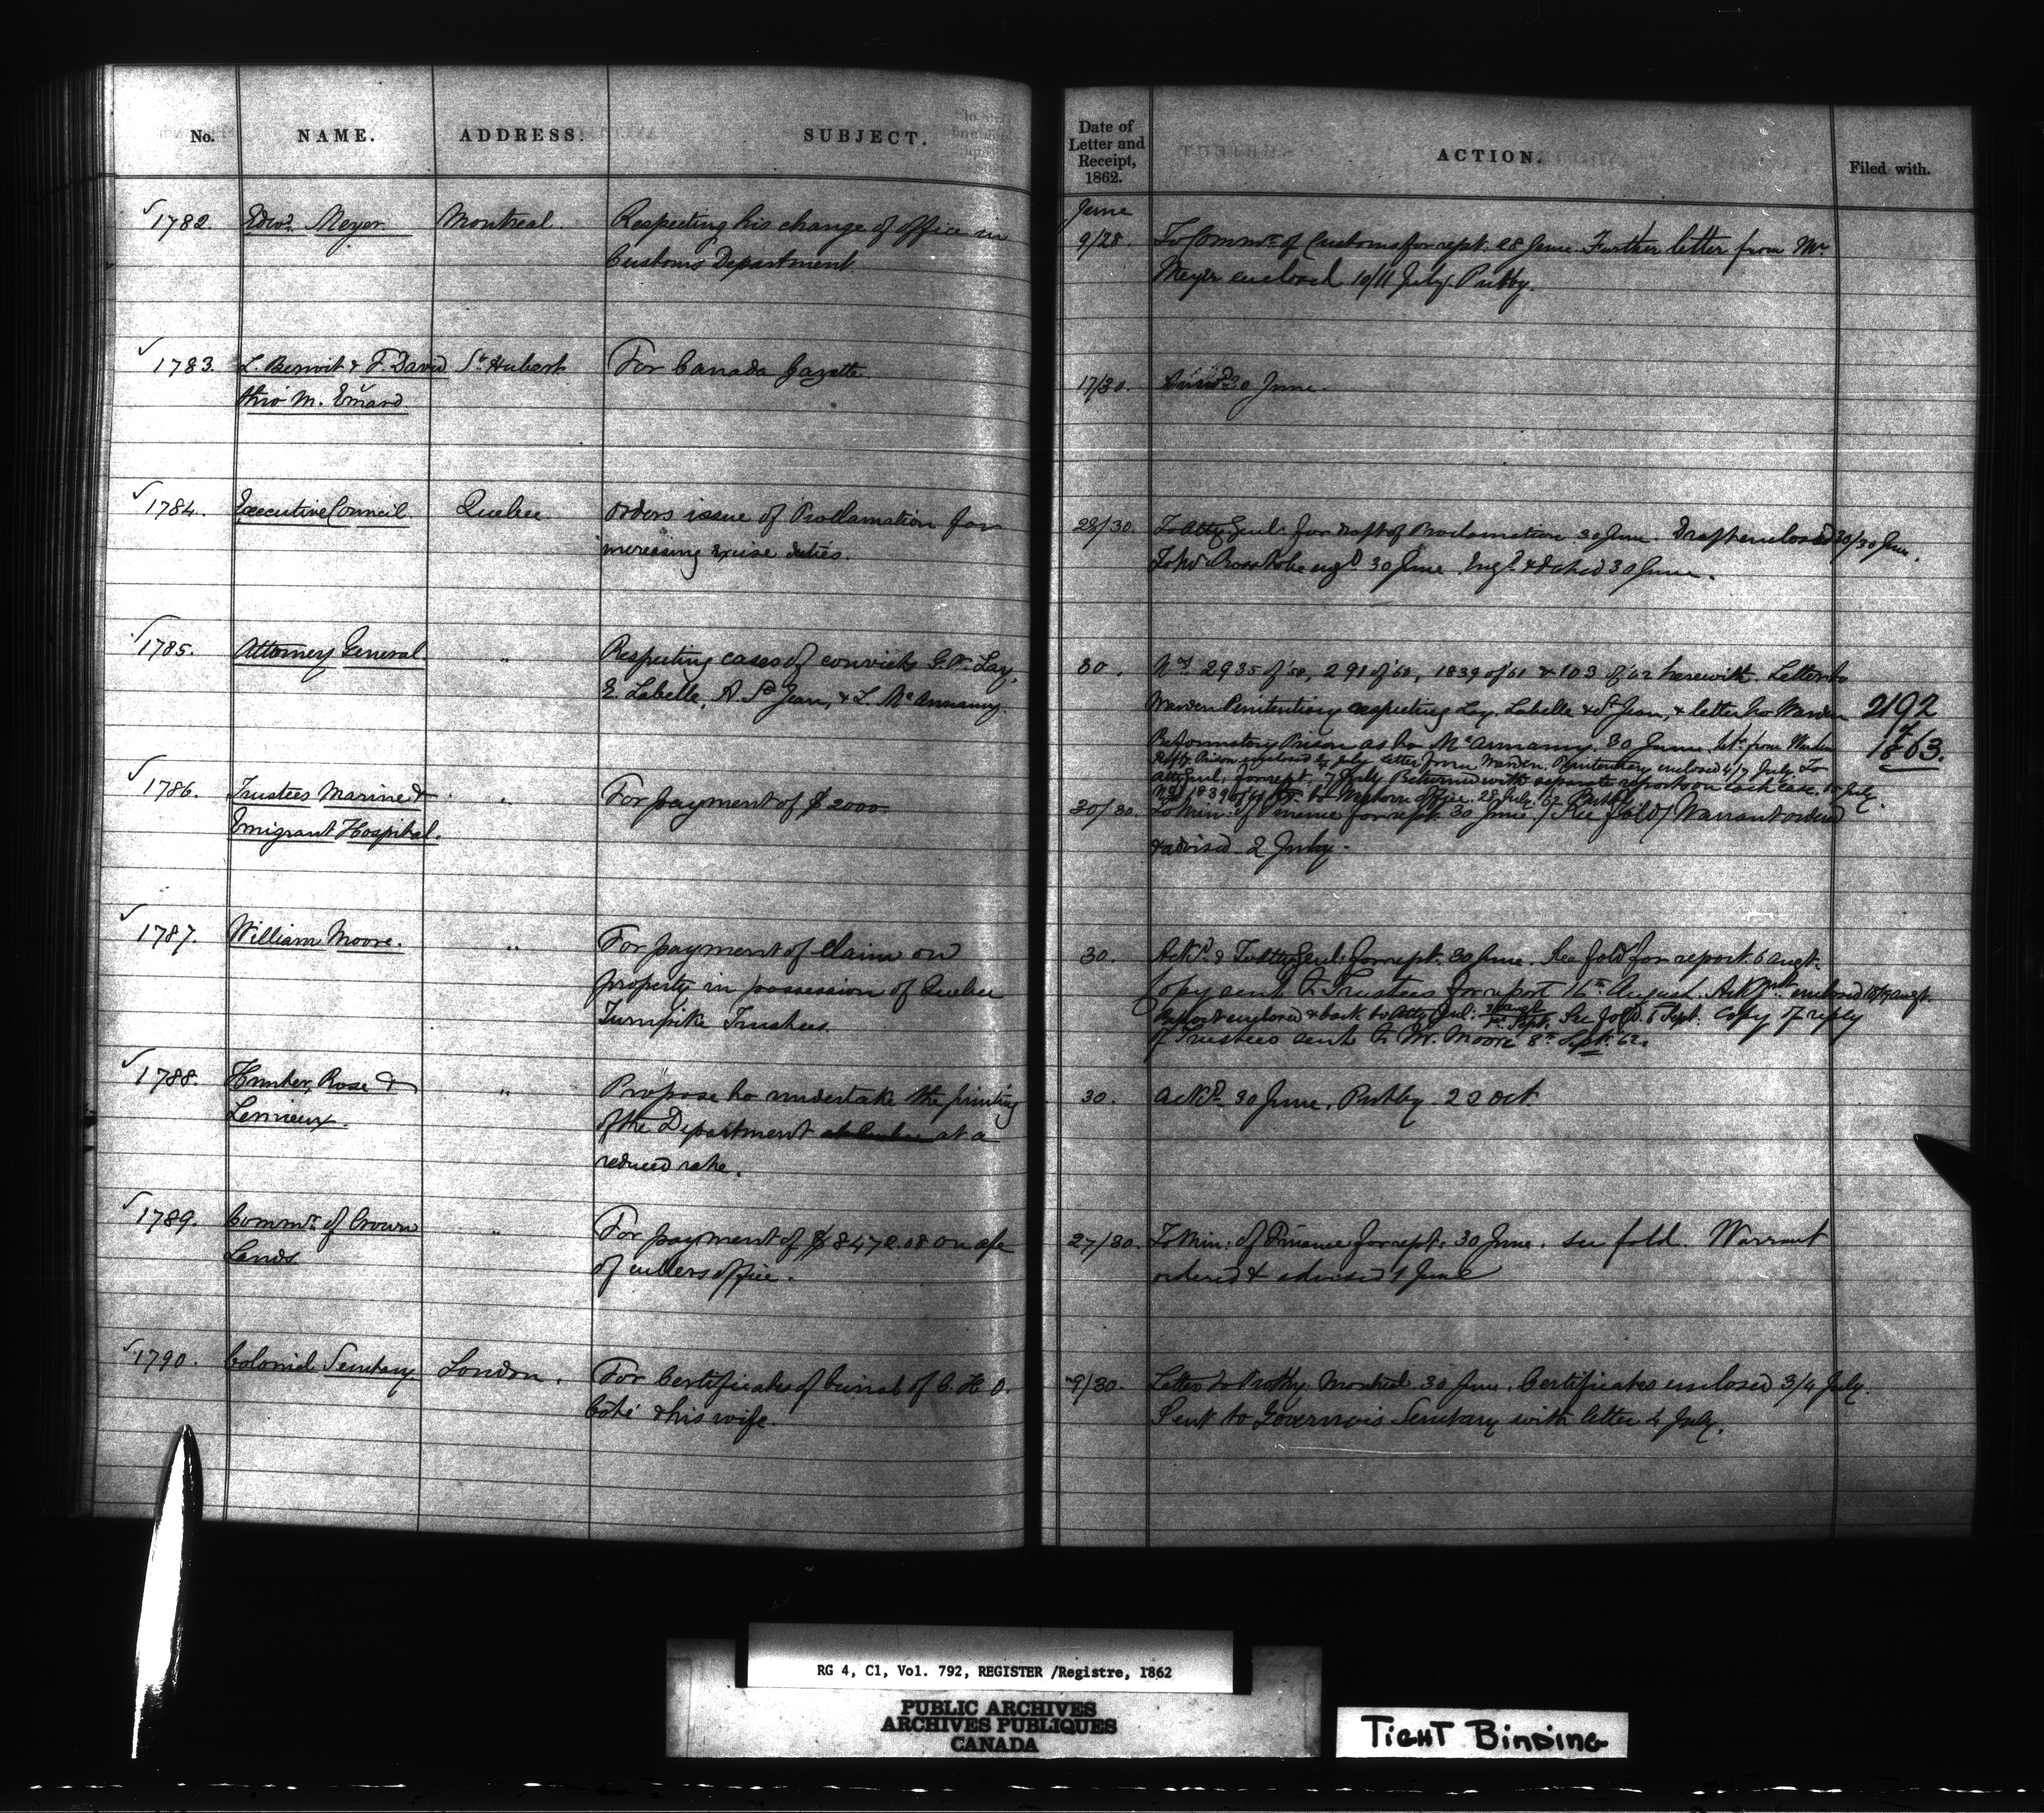 No. NAME. ADDRESS. SUBJECT.
Date of Letter and Receipt, 1862. ACTION. Filed with.
1782. Edwd. Meyer Montreal. Respecting his change of office in
Customs Department
June
9/28. To Commr. of Customs for rept. 28 June. Further letter from Mr.
Meyer enclosed 10/11 July. Putby.
1783. L. Benoit & F. David St. Hubert For Canada Gazette.
thro' M. Emard
17/30. Answd. 30 June.
1784. Executive Council Quebec Orders issue of Proclamation for
increasing excise duties.
28/30. To Atty Genl. for draft of Proclamation 30 June. Draft enclosed 30/30 June.
30 June. Engd. & dated 30 June.
1785. Attorney General. " Respecting cases of convicts G. Lay,
E. Labelle, A. St. Jean, & L. McAnnany.
30. Nos. 2935 of '58, 291 of '60, 1839 of '61 & 103 of '62 herewith. Letter to
Warden Penitentiary respecting Lay, Labelle & St. Jean, & letter to Warden
Reformatory Prison as to McAnnany. 30 June. from Warden
Prison enclosed July. Letter from Warden Penitentiary enclosed 4/7 July. To
Atty Genl. for rept. 7 July. Returned with separate reports on each case. July.
1839 of 61 to Western Office. 28 July. 62. Putby.
2192
of
1863.
1786. Trustees Marine & " For payment of $2000
Emigrant Hospital.
30/30. To Min: of Finance for rept. 30 June. / See fold / Warrant ordered
& advised 2 July.
1787. William Moore. " For payment of Claim on
property in possession of Quebec
Turnpike Trustees.
30. Ackd. & To Atty Genl: for rept. 30 June. See fold for report 6 augt.
Copy sent to Trustees for report 16th. August. enclosed augt.
Report enclosed & back to Atty Genl: Sept. See fold. 6 Sept. Copy of reply
of Trustees sent to W. Moore 8th Sept. 62.
1788. Hunter, Rose & " Propose to undertake the printing
Lemieux. of the Department at Quebec at a
reduced rate.
30. Ackd. 30 June, Putby. 22 Oct.
1789. Commr. of Crown " For payment of $8472.08 on a/c
Lands. of cullers office.
27/30. To Min: of Finance for rept. 30 June. see fold. Warrant
ordered & advised 1 June
1790. Colonial Secretary London. For Certificates of burial of C. H. O.
Coté & his wife.
9/30. Letter to Prothy. Montreal 30 June. Certificates enclosed 3/4 July.
Sent to Governor's Secretary with letter 4 July.
RG 4, C1, Vol. 792, REGISTER /Registre, 1862
PUBLIC ARCHIVES
ARCHIVES PUBLIQUES
CANADA
TIGHT BINDING